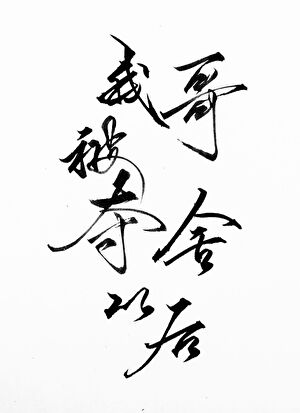 我哥
被
夺舍
以后